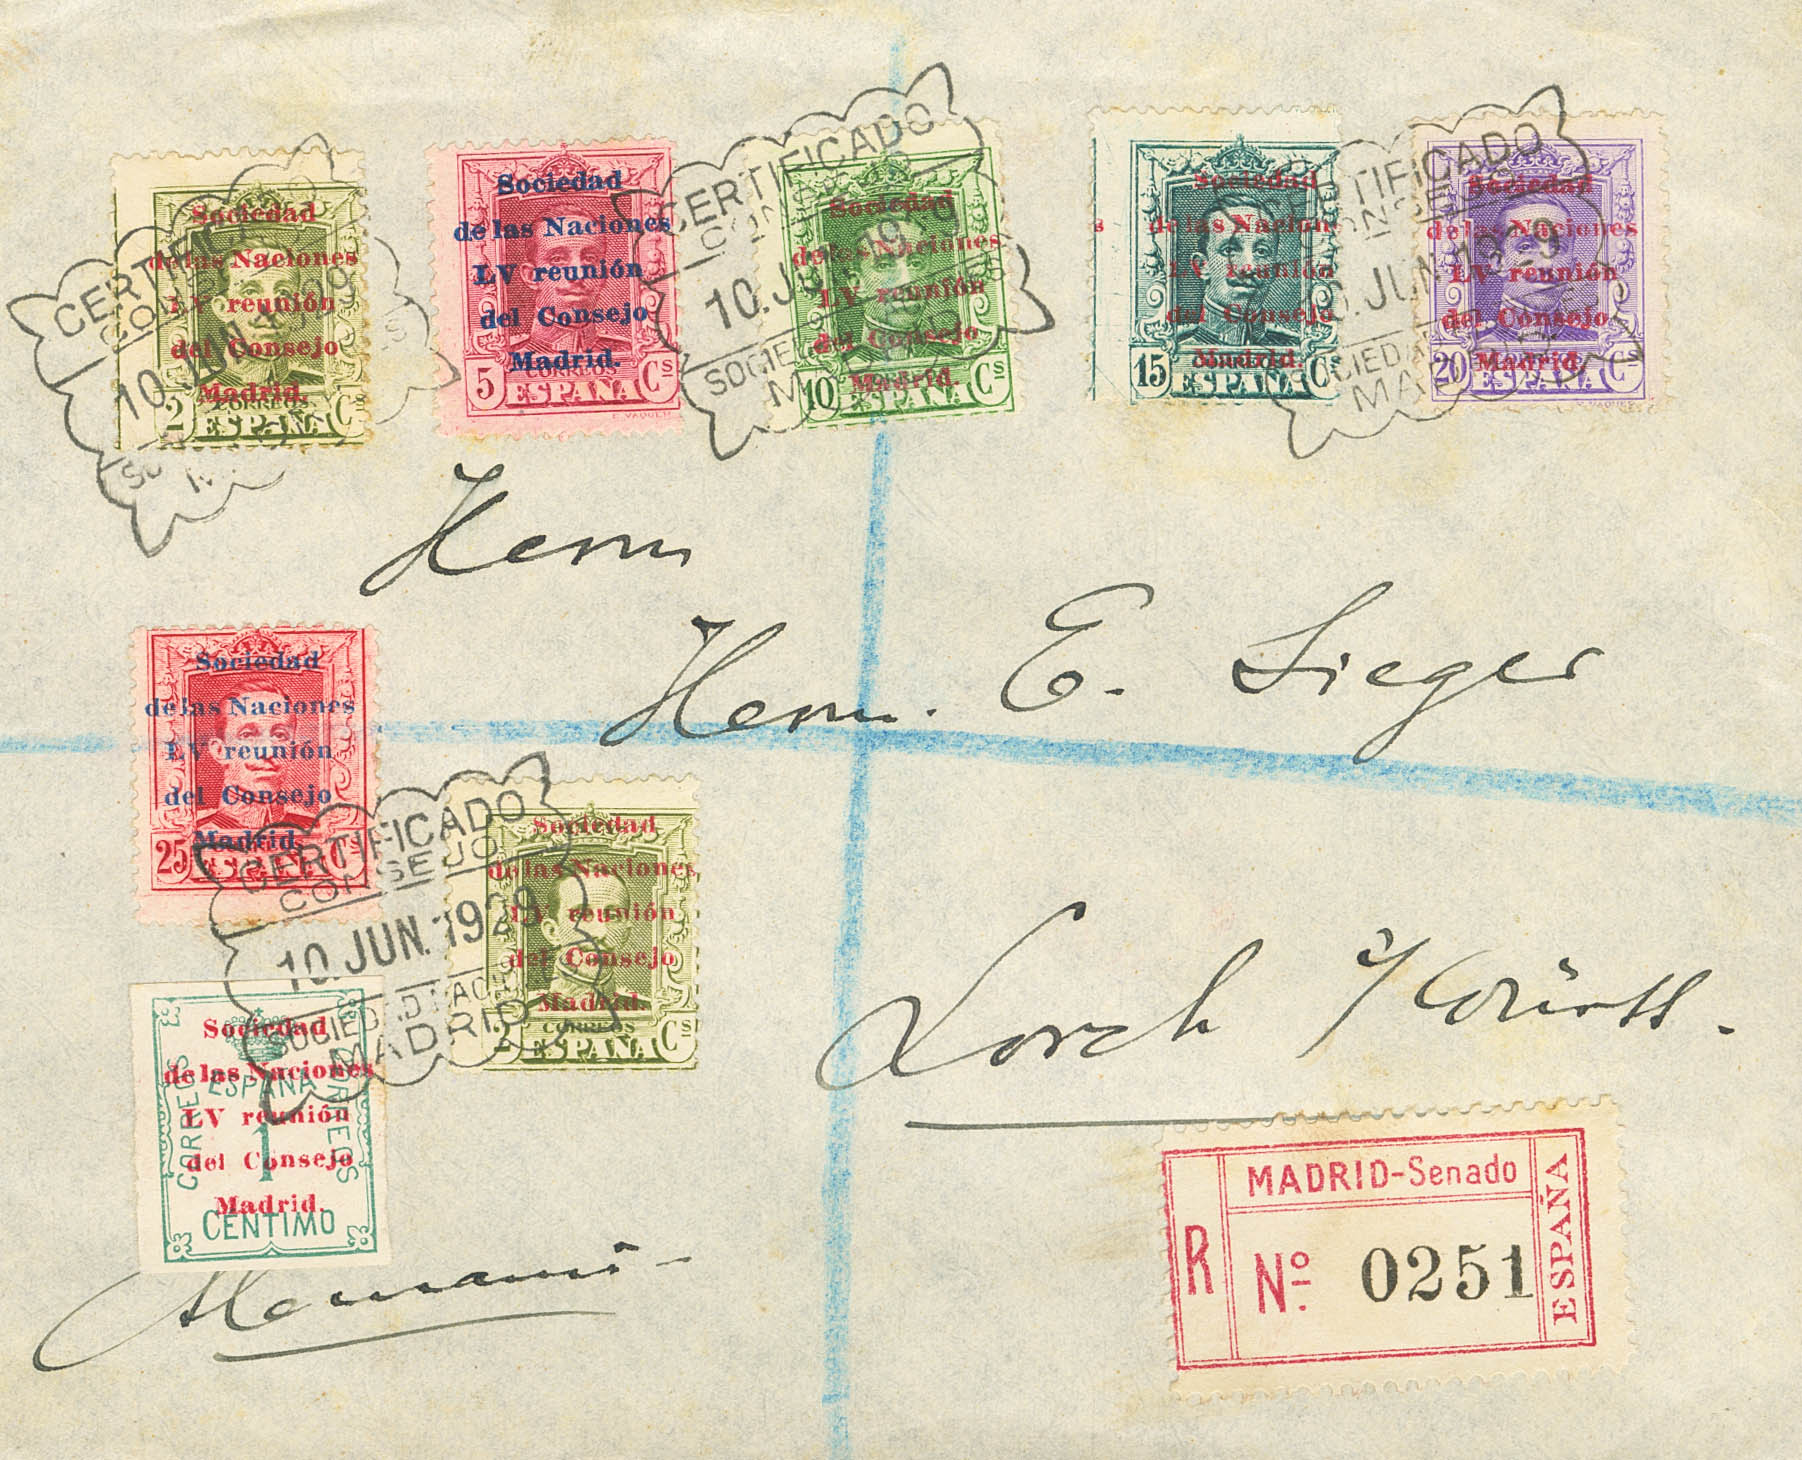 Sociedad
de las Naciones
LV reunión
del Consejo
Madrid.
CORREOS
2 Cs
ESPAÑA
CERTIFICADO
10.JUN.1929
Sociedad
de las Naciones
LV reunión
del Consejo
Madrid.
CORREOS
5 Cs
ESPAÑA
E. VAQUER
CERTIFICADO
10.JUN.1929
SOCIE
Sociedad
de las Naciones
LV reunión
del Consejo
Madrid.
10 Cs
ESPAÑA
s
Sociedad
de las Nacion
LV reunión
del Consejo
Madrid.
15 Cs
ESPAÑA
RTIFICADO
CONSEJO
JUN.1929
SOCIEDA
MA
Sociedad
de las Naciones
LV reunión
del Consejo
Madrid.
20 Cs
ESPAÑA
Herrn
Herrn. E. Sieger
Lorch i/Württ.
Alemania
Sociedad
de las Naciones
LV reunión
del Consejo
Madrid.
25 Cs
ESPAÑA
CERTIFICADO
CONSEJO
10.JUN.1929
SOCIEDAD NACI
MADRID
Sociedad
de las Naciones
LV reunión
del Consejo
Madrid.
CORREOS
2 Cs
ESPAÑA
Sociedad
de las Naciones
LV reunión
del Consejo
Madrid.
CORREOS
ESPAÑA
CORREOS
1
CENTIMO
MADRID-Senado
R
Nº 0251
ESPAÑA